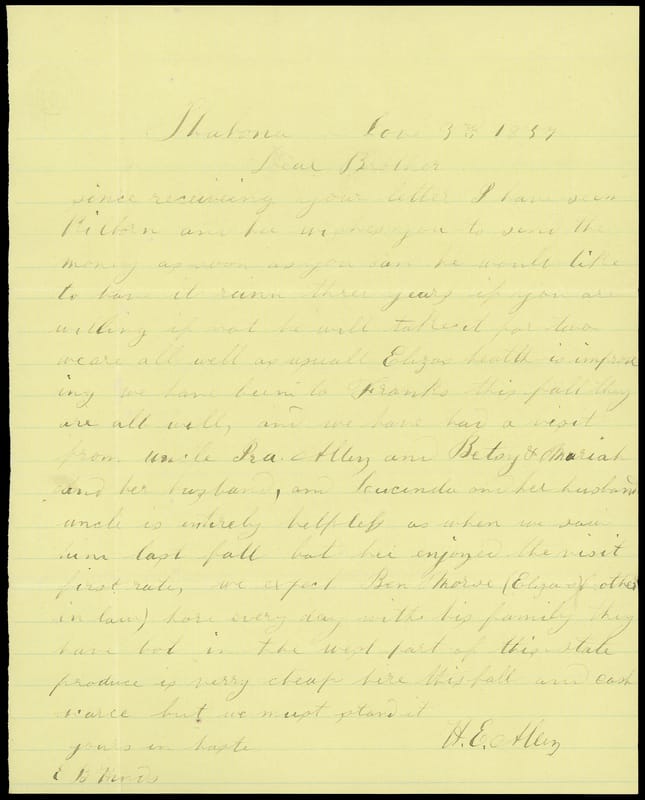 Shabona Nov 3rd 1859
Dear Brother
since receiveing your letter I have seen
and he wishes you to send the
money as soon as you can he would like
to have it runn three years if you are
willing if not he will take it for two
we are all well as usuall Elizas health is improv
ing we have been to Franks this fall they
are all well, and we have had a visit
from uncle Ira Allen and Betsy & Mariah
and her husband, and Lucinda and her husband
uncle is entirely helpless as when we saw
him last fall but he enjoyed the visit
first rate, we expect Ben Morse (Elizas brother
in law) here every day with his family they
have bot in the west part of this state
produce is verry cheap here this fall and cash
scarce but we must stand it
yours in haste H. E. Allen
E B Hinds